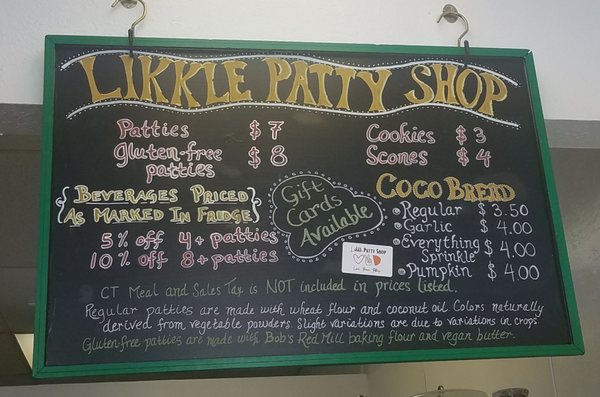 LIKKLE PATTY SHOP
Patties $7
Gluten-free patties $8
Cookies $3
Scones $4
{BEVERAGES PRICED
AS MARKED IN FRIDGE}
5% off 4+ patties
10% off 8+ patties
Gift
Cards
Available
COCO BREAD
• Regular $3.50
• Garlic $4.00
• Everything Sprinkle $4.00
• Pumpkin $4.00
Likkle Patty Shop
CT Meal and Sales Tax is NOT included in prices listed.
Regular patties are made with wheat flour and coconut oil. Colors naturally
derived from vegetable powders. Slight variations are due to variations in crops.
Gluten-free patties are made with Bob's Red Mill baking flour and vegan butter.